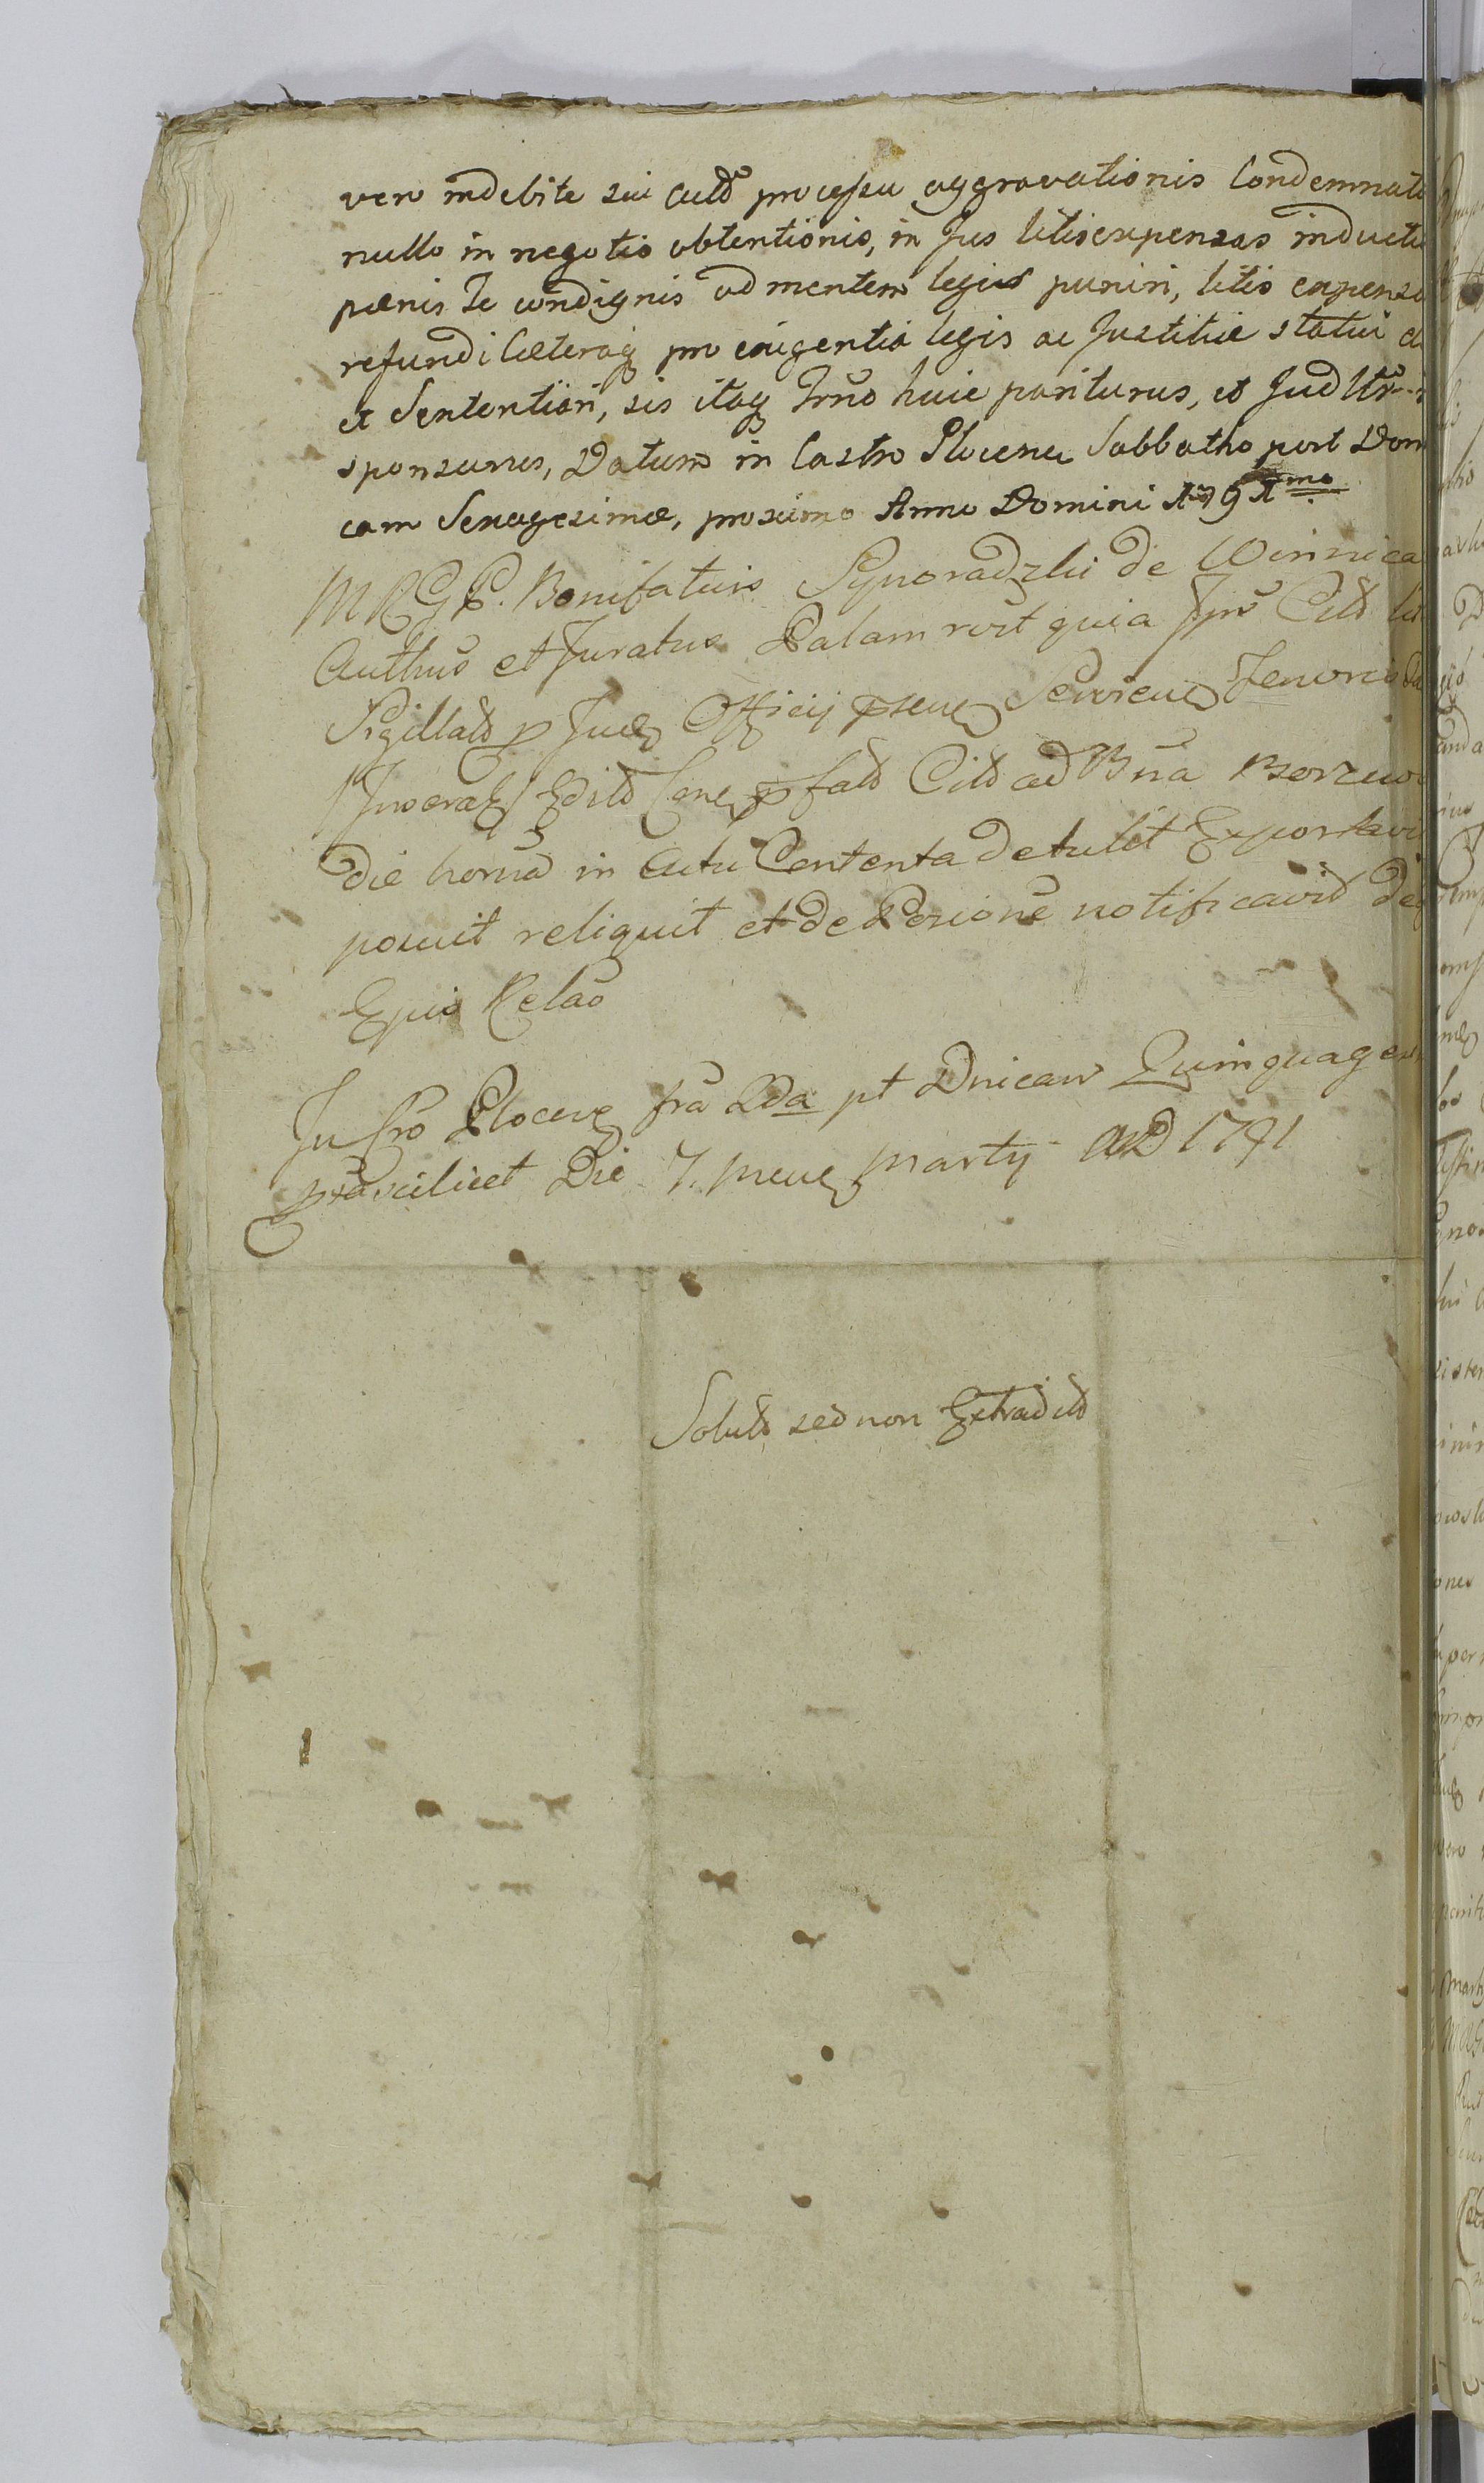 vero indebite sui Cittõ processu aggravationis Condemnat
nullo in negotio obtentionis, in Jus litis expensas inductu
pœnis Te condignis ad mentem legis puniri, litis expensa
refundi Cæteraq pro exigentia legis ac Justitiæ statui
et Sententiari, sis itaq Trño huic pariturus, et Jud
sponsurus, Datum in Castro Plocensi Sabbatho post Dom
cam Sexagesimæ, proximo Anno Domini 1791mo
MRGP. Bonifatius Synoradzki de Winnica
Authus et Juratus Palam rixt quia
Sigillatt p Officij psens Seriens Tenoris
Insera Editt Cone pfatt Citt ad Bña Borzuw
die horña in Actu Contenta detulit Exportavi
posuit reliquit et de Posione notificavit
Epis Relão
In Cro Plocen fra 2da pt Dnicam Quinquages
pxã scilicet Die 7. mens Martij AD 1791
Solutt sed non Extraditt